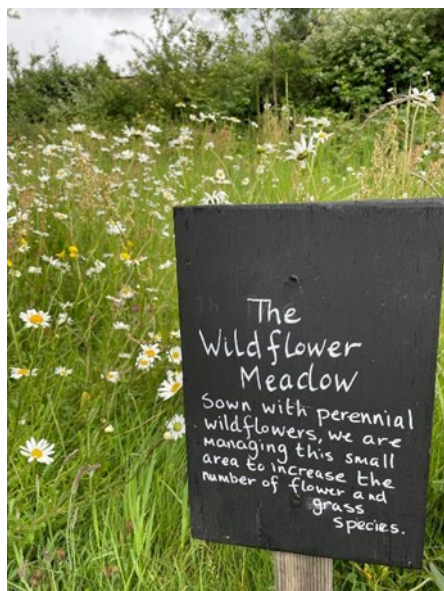 The
Wildflower
Meadow
Sown with perennial
wildflowers, we are
managing this small
area to increase the
number of flower and
grass
species.